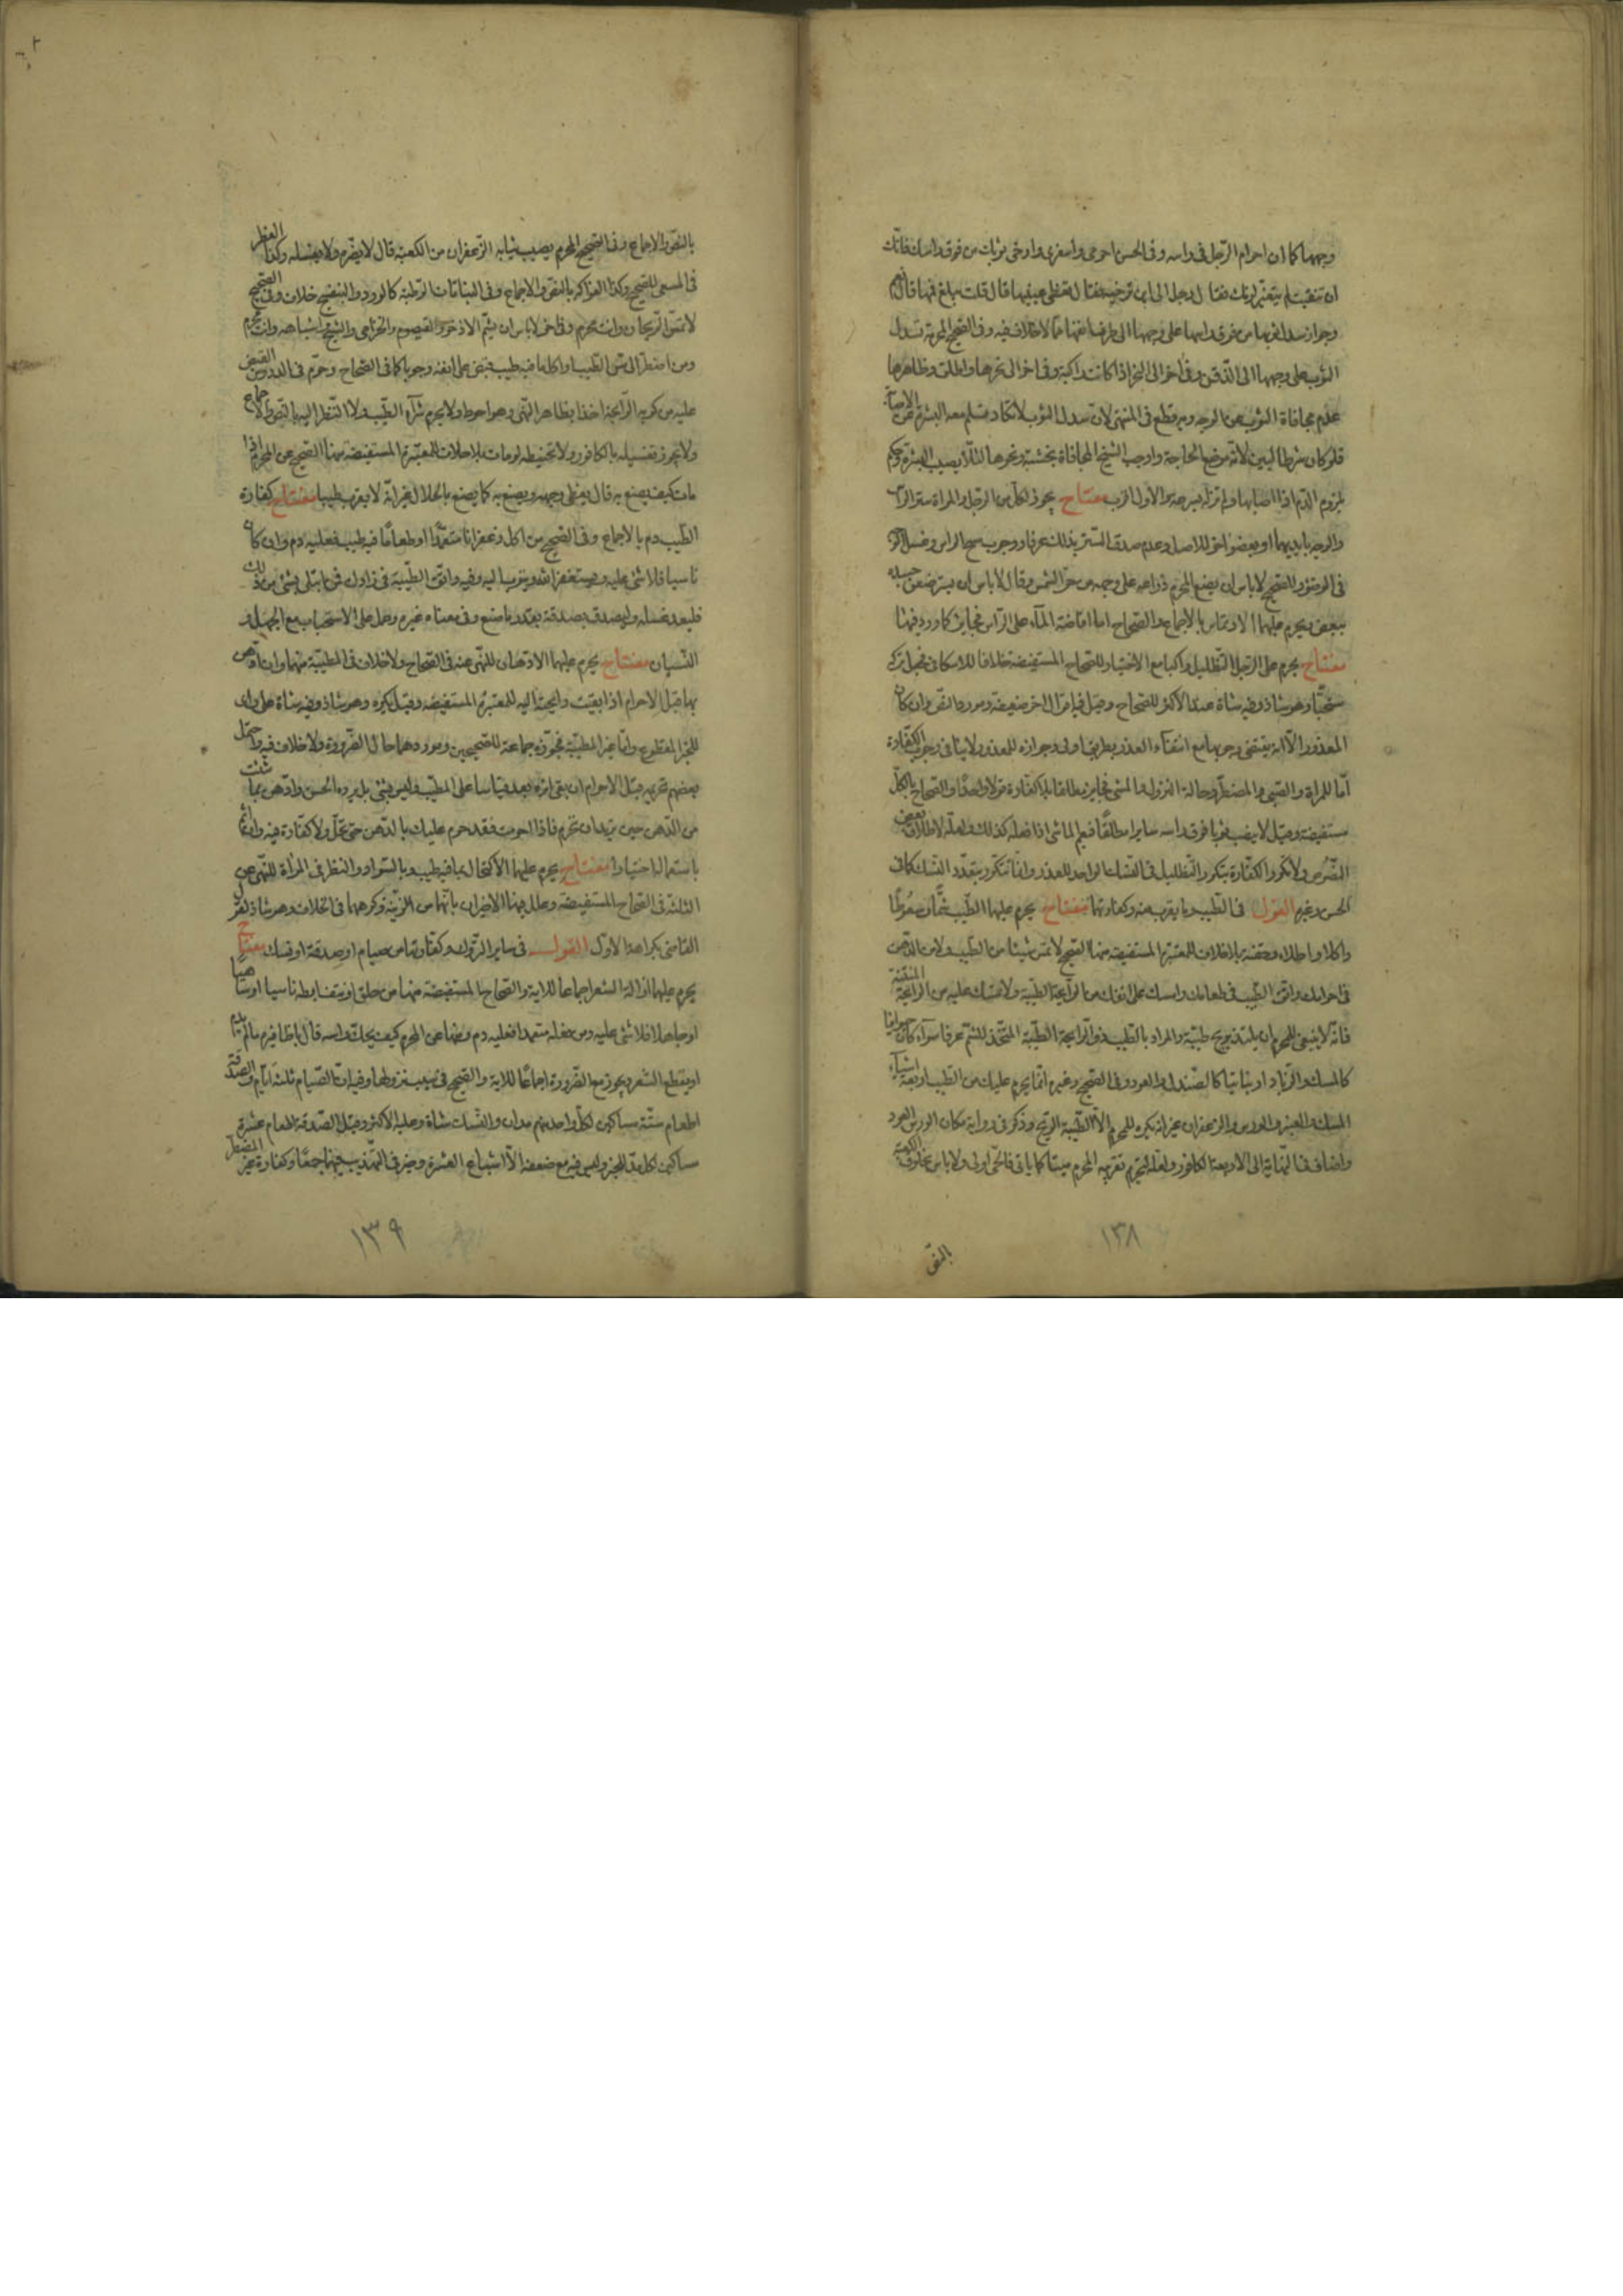 وجهها كما ان احرام الرّجل فى راسه وفى الحسن احرمى واسفرى وارخى ثوبك من فوق راسك فانّك
ان تنقبت لم يتغيّر لونك فقال رجل الى اين ترخيه فقال تغطى عينيها قال قلت يبلغ فمها قال نعم
وجواز سدل ثوبها من فوق راسها على وجهها الى طرف انفها ممّا لا خلاف فيه وفى الصّحيح المحرمة تسدل
الثوب على وجهها الى الذّقن وفى اخر الى النحر اذا كانت راكبة وفى اخر الى نحرها واطلق وظاهرها
عدم مجافاة الثوب عن الوجه وبه قطع فى المنتهى لان سدل الثوب لا تكاد تسلم معه البشرة من الاصابة
فلو كان شرطا لبين لانه موضع الحاجة واوجب الشيخ المجافاة بخشبة ونحوها لئلا يصيب البشرة وحكم
بلزوم الدّم اذا اصابها ولم تزله بسرعة والاول اقرب مفتاح يجوز لكلّ من الرجل والمراة ستر الراس
والوجه بايديهما او ببعض اخر للاصل وعدم صدق الستر بذلك عرفا ووجوب مسح الراس وغسل الوجه
فى الوضوء وللصّحيح لا باس ان يضع المحرم ذراعه على وجهه من حرّ الشمس وقال لا باس ان يستر بعض جسده
ببعض ويحرم عليهما الارتماس بالاجماع والصّحاح اما افاضة المآء على الرّاس فجايز كما ورد فيها
مفتاح يحرم على الرّجل التظليل راكبا مع الاختيار للصّحاح المستفيضة خلافا للاسكافى فجعل تركه
مستحبّا وهو شاذ وفيه شاة عند الاكثر للصّحاح وقيل فيه اقوال اخر ضعيفة ومورد النّصّ وان كان
المعذور الّا انه يقتضى وجوبها مع انتفآء العذر بطريق اولى وجوازه للمعذور لا ينافى وجوب الكفّارة
امّا للمراة والصّبى والمضطرّ وحالة النزول والمشى فجايز مطلقا بلا كفّارة قولا واحدا والصّحاح بالكلّ
مستفيضة وقيل لا ينصب ثوبا فوق راسه سايرا مطلقا فيعم الماشى اذا فعله كذلك ولعله لاطلاق بعض
النّصوص ولا تكرر الكفّارة بتكرر التّظليل فى النّسك الواحد للعذر وانّما تتكرّر بتعدّد النّسك كما فى
الحسن وغيره القول فى الطّيب وما يقرب منه وكفارتها مفتاح يحرم عليهما الطّيب شمّا وسعوطا
واكلا واطلاء وحقنة بلا خلاف للمعتبرة المستفيضة منها الصّحيح لا تمسّ شيئا من الطّيب ولا من الدّهن
فى احرامك واتّق الطّيب فى طعامك وامسك على انفك من الرّايحة الطيّبة ولا تمسك عليه من الرايحة المنتنة
فانّه لا ينبغى للمحرم ان يلتذ بريح طيّبة والمراد بالطّيب ذو الرّايحة الطيّبة المتّخذ للشّم عرفا سوآء كان حيوانيا
كالمسك والزّباد او نباتيا كالصّندل والعود وفى الصّحيح وغيره انّما يحرم عليك من الطّيب اربعة اشيآء
المسك والعنبر والورس والزعفران غير انه يكره للمحرم الادهان الطيّبة الرّيح وذكر فى رواية مكان الورس العود
واضاف فى النّهاية الى الاربعة الكافور ولعله لتحريم تقريبه المحرم ميتا كما ياتى فالحىّ اولى ولا باس بخلوق الكعبة
بالنّصّ
١٣٨
بالنّصّ والاجماع وفى الصّحيح المحرم يصيب ثيابه الزّعفران من الكعبة قال لا يضرّه ولا يغسله وكذا العطر
فى المسعى للصّحيح وكذا الفواكه بالنصّ والاجماع وفى النباتات الرّطبة كالورد والبنفسج خلاف وفى الصّحيح
لا تمسّ الرّيحان وانت محرم وفى اخر لا باس ان يشّم الاذخر والقيصوم والخزامى والشّيح واشباهه وانت محرم
ومن اضطرّ الى مسّ الطّيب او اكل ما فيه طيب قبض على انفه وجوبا كما فى الصّحاح وحرّم فى الدروس القبض
عليه من كريه الرّايحة اخذا بظاهر النّهى وهو احوط ولا يحرم شرآء الطّيب ولا النّظر اليه بالنّصّ والاجماع
ولا يجوز تغسيله بالكافور ولا تحنيطه لو مات بلا خلاف للمعتبرة المستفيضة منها الصّحيح عن المحرم اذا
مات كيف يصنع به قال يغطى وجهه ويصنع به كما يصنع بالحلال غير انّه لا يقرب طيبا مفتاح كفّارة
الطّيب دم بالاجماع وفى الصّحيح من اكل زعفرانا متعمّدا او طعاما فيه طيب فعليه دم وان كان
ناسيا فلا شئ عليه ويستغفر الله ويتوب اليه وفيه واتق الطّيبة فى زادك فمن ابتلى بشئ من ذلك
فليعد غسله وليصدق بصدقة بقدر ما صنع وفى معناه غيره وحمل على الاستحباب مع الجهل او
النّسيان مفتاح يحرم عليهما الادّهان للنّهى عنه فى الصّحاح ولا خلاف فى المطيّبة منها وان ادّهن
بها قبل الاحرام اذا بقيت رايحته اليه للمعتبرة المستفيضة وقيل يكره وهو شاذ وفيه شاة على راى
للخبر المقطوع وامّا غير المطيّبة فجوّزه جماعة للصّحيحين وموردهما حال الضّرورة ولا خلاف فيه واحتمل
بعضهم تحريمه قبل الاحرام ان بقى اثره بعد قياسا على المطيّب وليس بشئ بل يرده الحسن وادّهن بما شئت
من الدّهن حين تريد ان تحرم فاذا احرمت فقد حرم عليك الدّهن حتى تحلّ ولا كفّارة فيه وان اثم
باستعماله اختيارا مفتاح يحرم عليهما الاكتحال بما فيه طيب وبالسّواد والنظر فى المرآة للنّهى عن
الثلثة فى الصّحاح المستفيضة وعلل فيها الاخيران بانّهما من الزّينة وكرههما فى الخلاف وهو شاذ لقول
القاضى بكراهة الاوّل القول فى ساير التّروك وكفّاراتها من صيام او صدقة او نسك مفتاح
يحرم عليهما ازالة الشعر اجماعا للاية والصّحاح المستفيضة منها من حلق او نتف ابطه ناسيا او ساهيا
او جاهلا فلا شئ عليه ومن فعله متعمدا فعليه دم ومنها عن المحرم كيف يحكّ راسه قال باظافيره ما لم يدم
او يقطع الشّعر ويجوز مع الضّرورة اجماعا للاية والصّحيح فى سبب نزولها وفيه انّ الصّيام ثلثة ايّام والصّدقة
اطعام ستّة مساكين لكلّ واحد منهم مدان والنّسك شاة وعليه الاكثر وقيل الصّدقة اطعام عشرة
مساكين لكلّ مدّ للخبر وليس فيه مع ضعفه الّا اشباع العشرة وخيّر فى التّهذيب بينهما جمعا وكفّارة غير المضطرّ
١٣٩